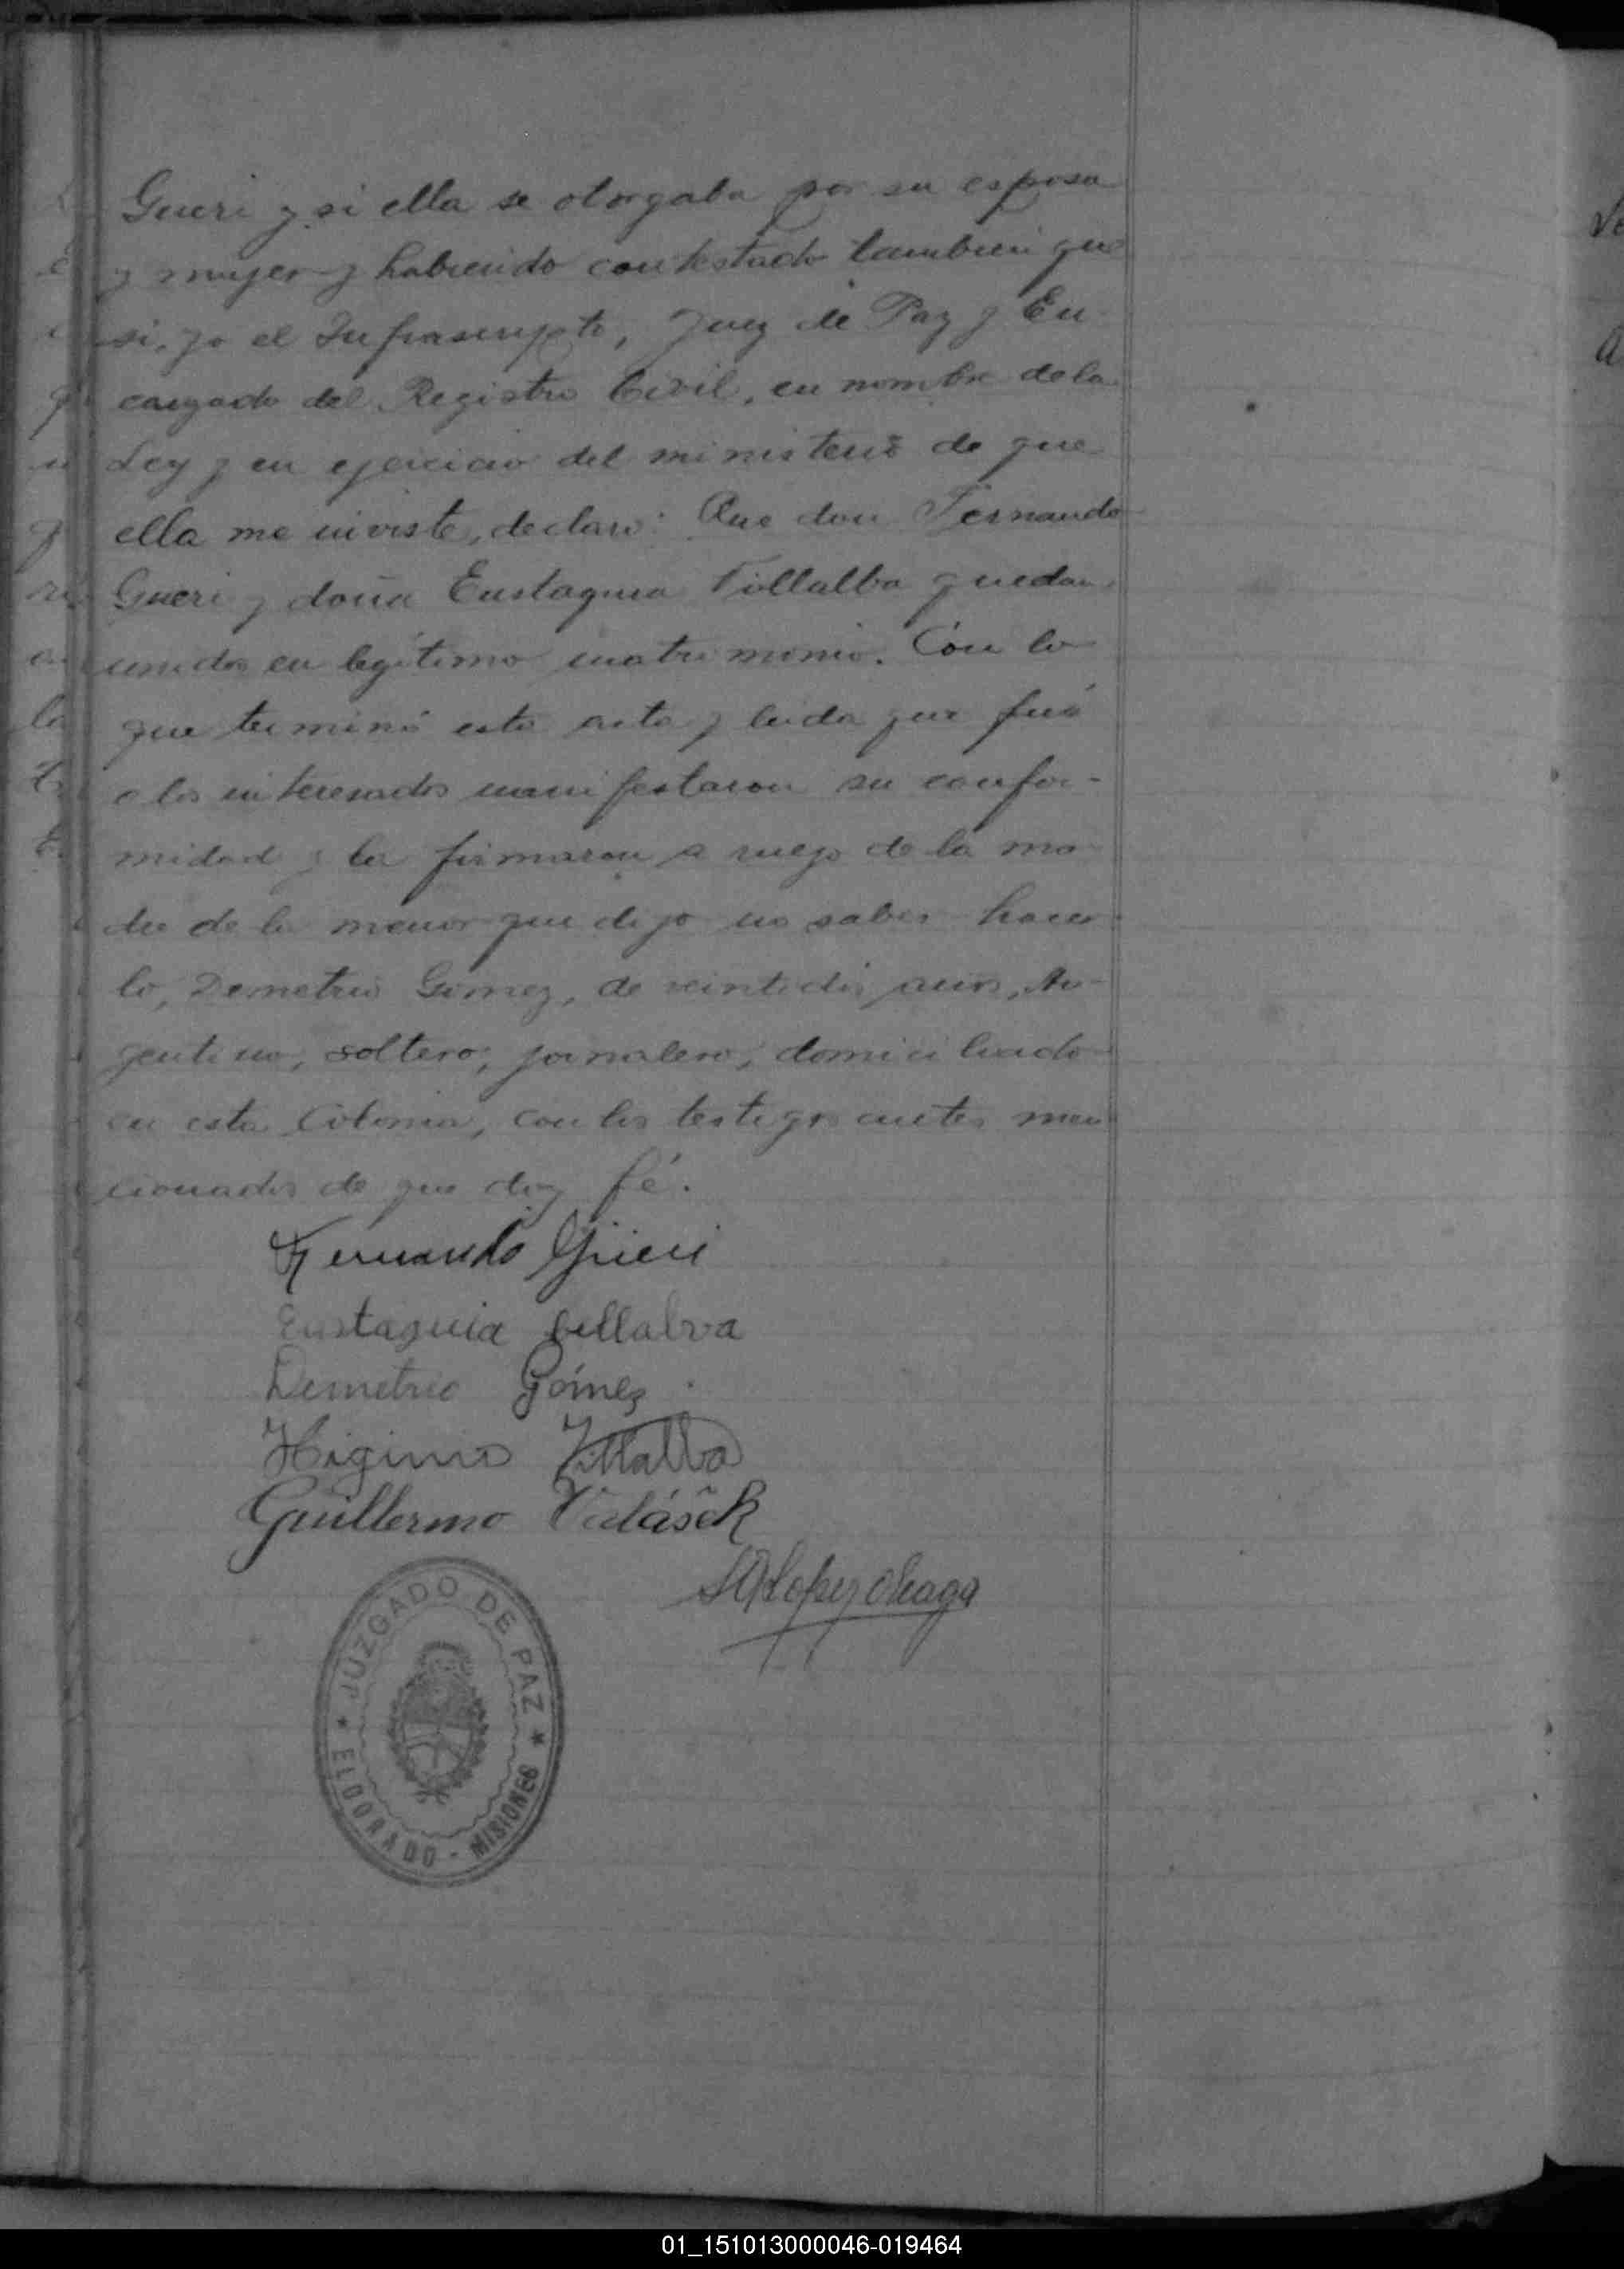 Gueri y si ella se otorgaba por su esposa
y mujer y habiendo contestado tambien que
si, yo el Infrascripto, Juez de Paz y En-
cargado del Registro Civil, en nombre de la
Ley y en ejercicio del ministerio de que
ella me inviste, declaro: Que don Fernando
Gueri y doña Eustaquia Villalba quedan
unidos en legítimo matrimonio. Con lo
que terminó este acto y leida que fué
a los interesados manifestaron su confor-
midad y la firmaron a ruego de la ma-
dre de la menor que dijo no saber hacer-
lo, Demetrio Gomez, de veintidos años, Ar-
gentino, soltero, jornalero, domiciliado
en esta Colonia, con los testigos antes men-
cionados de que doy fé.
Fernando Güeri
Eustaquia Villalva
Demetrio Gómez
Higinio Villalba
Guillermo
Lopez
JUZGADO DE PAZ
ELDORADO - MISIONES
01_151013000046-019464